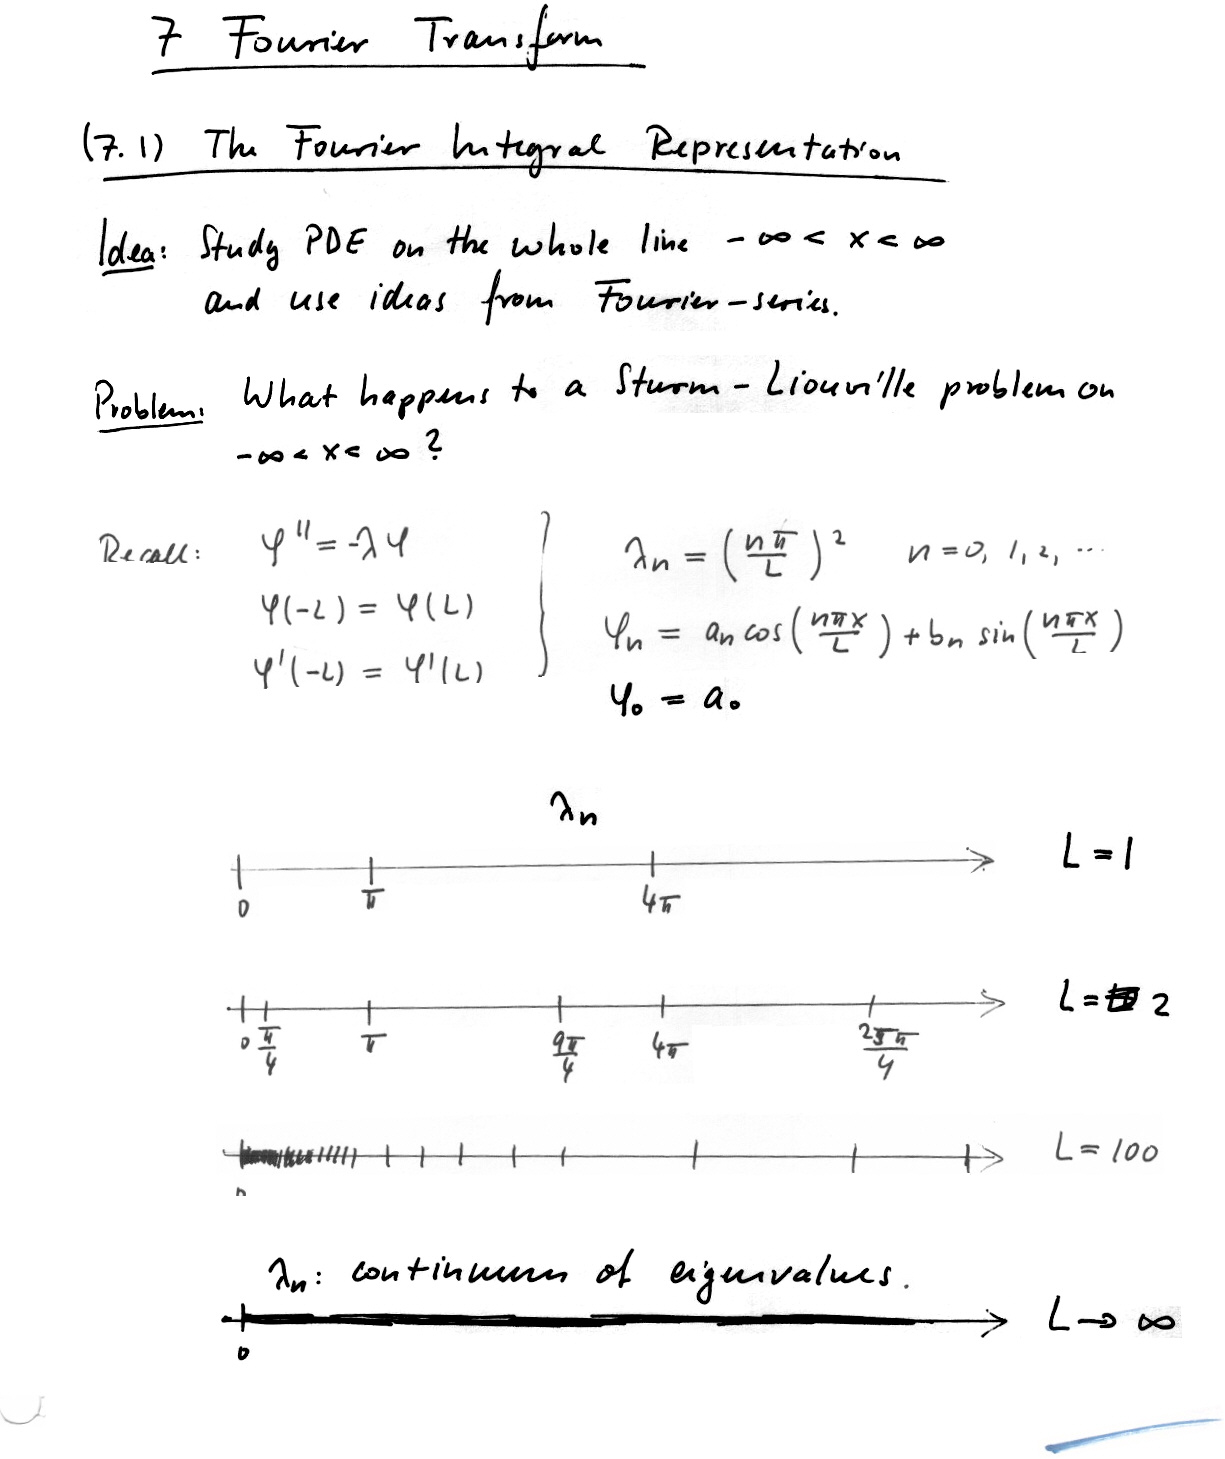 7 Fourier Transform
(7.1) The Fourier Integral Representation
Idea: Study PDE on the whole line -∞ < x < ∞
and use ideas from Fourier-series.
Problem: What happens to a Sturm-Liouville problem on
-∞ < x < ∞ ?
Recall: φ'' = -λφ
φ(-L) = φ(L)
φ'(-L) = φ'(L)
λn = (nπ/L)² n=0, 1, 2, ...
φn = an cos(nπx/L) + bn sin(nπx/L)
φ₀ = a₀
λn
0 π 4π L=1
0 π/4 π 9π/4 4π 25π/4 L= 2
0 L=100
λn: continuum of eigenvalues.
0 L→∞